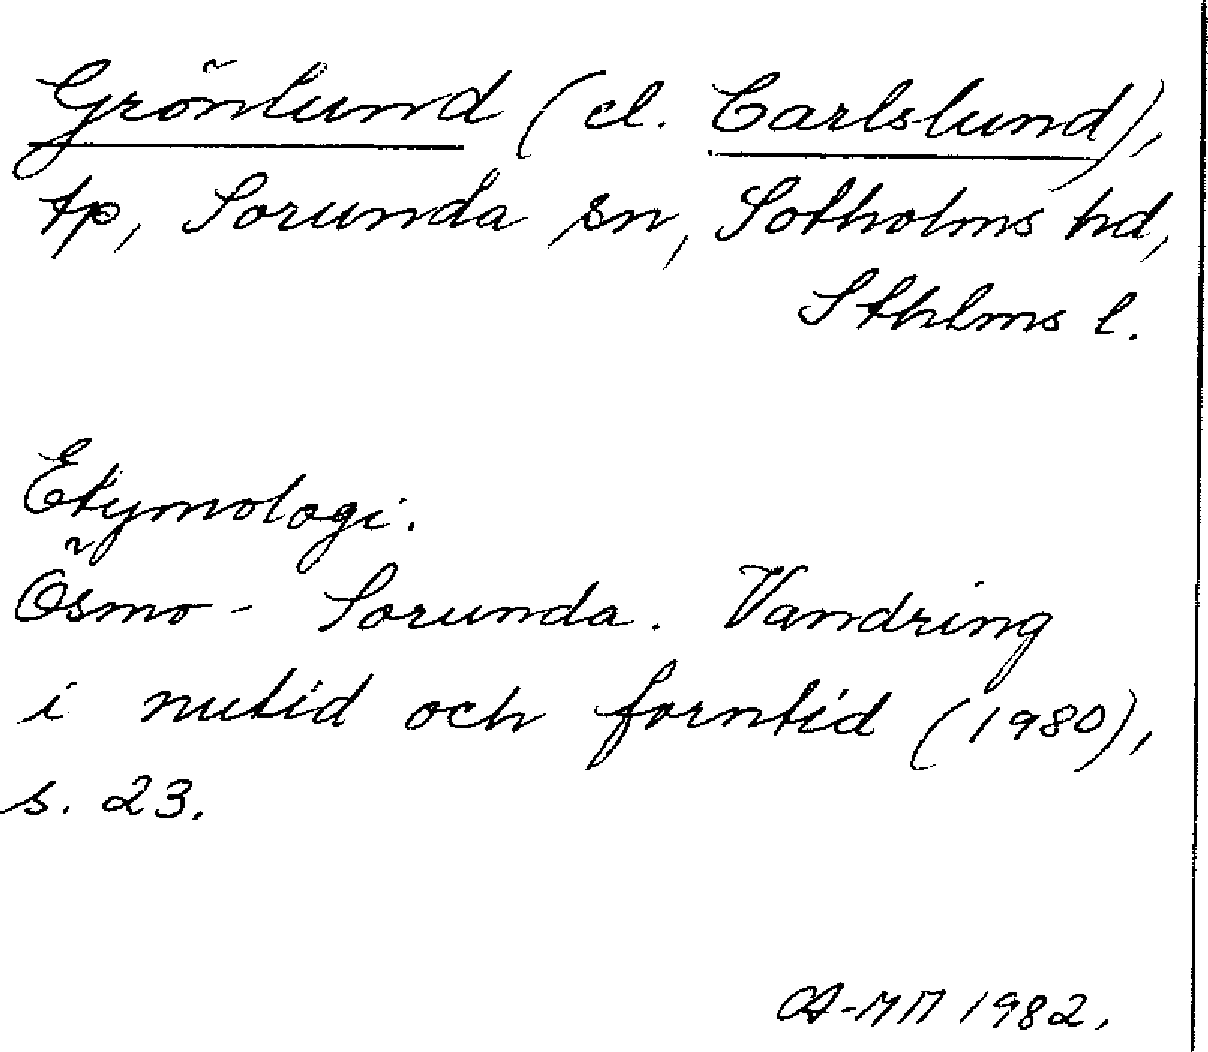 Grönlund (el. Carlslund),
tp, Sorunda sn, Sotholms hd,
Sthlms l.
Etymologi.
Ösmo - Sorunda. Vandring
i nutid och forntid (1980),
s. 23.
1982.